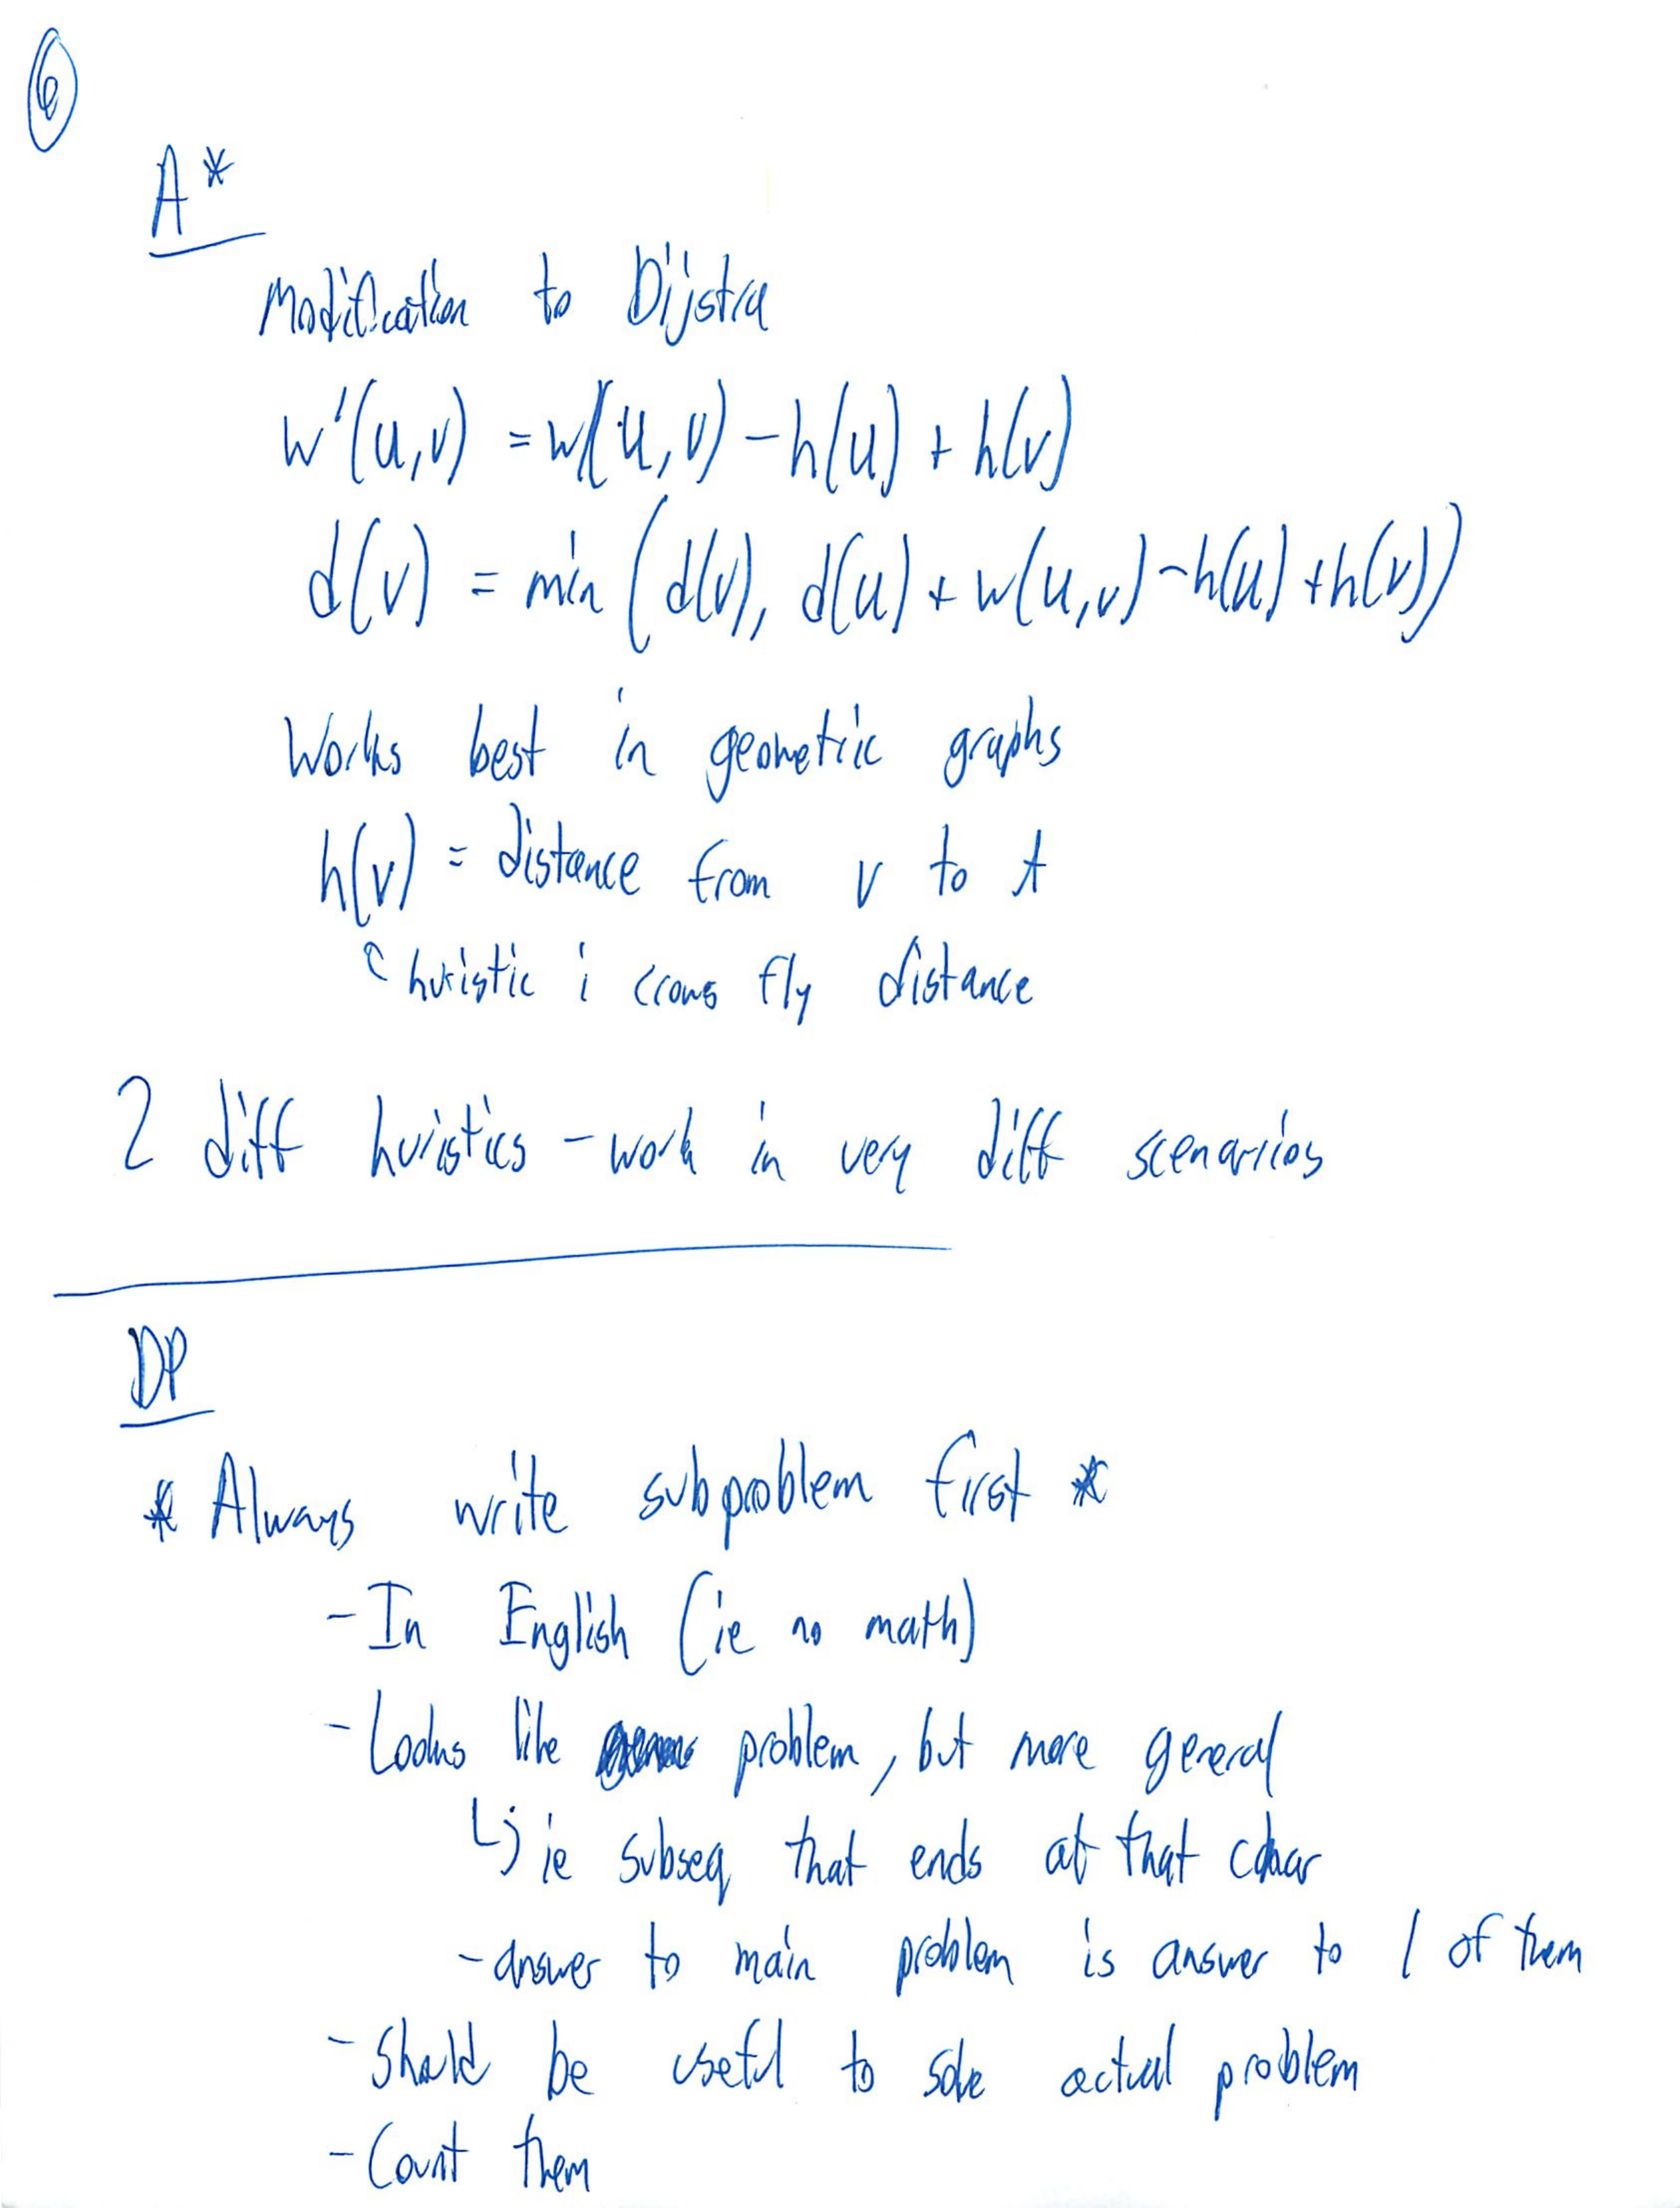 6
A*
Modification to Dijstra
w'(u,v) = w(u,v) - h(u) + h(v)
d(v) = min (d(v), d(u) + w(u,v) - h(u) + h(v))
Works best in geometric graphs
h(v) = distance from v to t
huristic i crows fly distance
2 diff huristics - work in very diff scenarios
DP
* Always write subproblem first *
- In English (ie no math)
- Looks like problem, but more general
↳ ie subseq that ends at that char
- answer to main problem is answer to 1 of them
- Should be useful to solve actual problem
- Count them